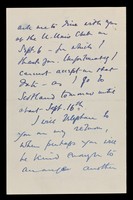 with me to dine with you
at the U. Univ Club on
Sept. 6 - for which I
thank you. Unfortunately I
cannot accept on that
date - as I go to
Scotland tomorrow until
about Sept. 16th
I will telephone to
you on my return,
when perhaps you will
be kind enough to
arrange another